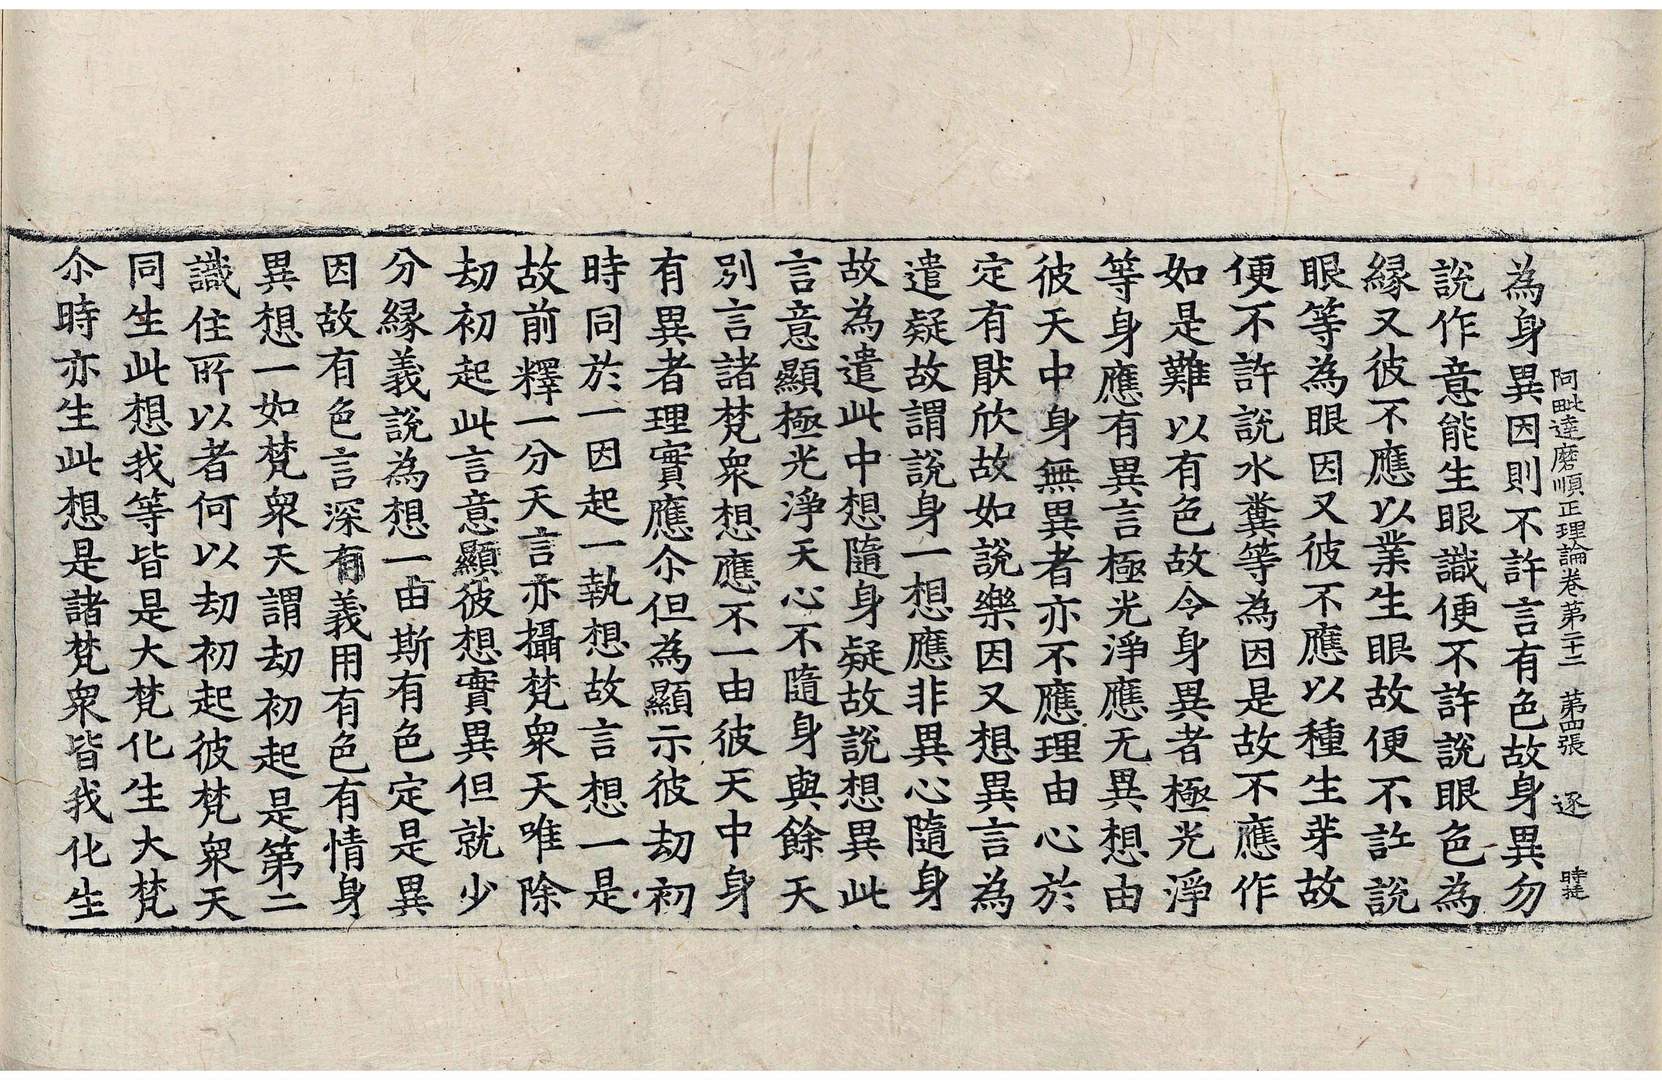 阿毗達磨順正理論卷第二十二　第四張　逐　時揵
為身異因則不許言有色故身異勿
說作意能生眼識便不許說眼色為
縁又彼不應以業生眼故便不許說
眼等為眼因又彼不應以種生芽故
便不許說水糞等為因是故不應作
如是難以有色故令身異者極光淨
等身應有異言極光淨應无異想由
彼天中身無異者亦不應理由心於
定有猒欣故如說樂因又想異言為
遣疑故謂說身一想應非異心隨身
故為遣此中想隨身疑故說想異此
言意顯極光淨天心不隨身與餘天
別言諸梵衆想應不一由彼天中身
有異者理實應尒但為顯示彼劫初
時同於一因起一執想故言想一是
故前釋一分天言亦攝梵衆天唯除
劫初起此言意顯彼想實異但就少
分縁義說為想一由斯有色定是異
因故有色言深有義用有色有情身
異想一如梵衆天謂劫初起是第二
識住所以者何以劫初起彼梵衆天
同生此想我等皆是大梵化生大梵
尒時亦生此想是諸梵衆皆我化生